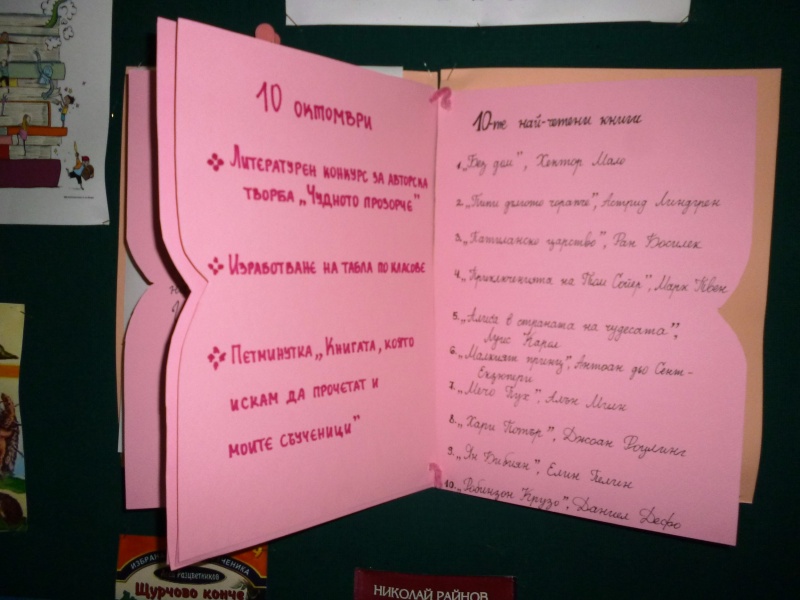 10 ОКТОМВРИ
ЛИТЕРАТУРЕН КОНКУРС ЗА АВТОРСКА
ТВОРБА „ЧУДНОТО ПРОЗОРЧЕ"
ИЗРАБОТВАНЕ НА ТАБЛА ПО КЛАСОВЕ
ПЕТМИНУТКА „КНИГАТА, КОЯТО
ИСКАМ ДА ПРОЧЕТАТ И
МОИТЕ СЪУЧЕНИЦИ"
10-те най-четени книги
1. „Без дом", Хектор Мало
2. „Пипи дългото чорапче", Астрид Линдгрен
3. „Патиланско царство", Ран Босилек
4. „Приключенията на Том Сойер", Марк Твен
5. „Алиса в страната на чудесата",
Луис Карол
6. „Малкият принц", Антоан дьо Сент-
Екзюпери
7. „Мечо Пух", Алън Милн
8. „Хари Потър", Джоан Роулинг
9. „Ян Бибиян", Елин Пелин
10. „Робинзон Крузо", Даниел Дефо
РАЗЦВЕТНИКОВ
Щурчово конче
НИКОЛАЙ РАЙНОВ